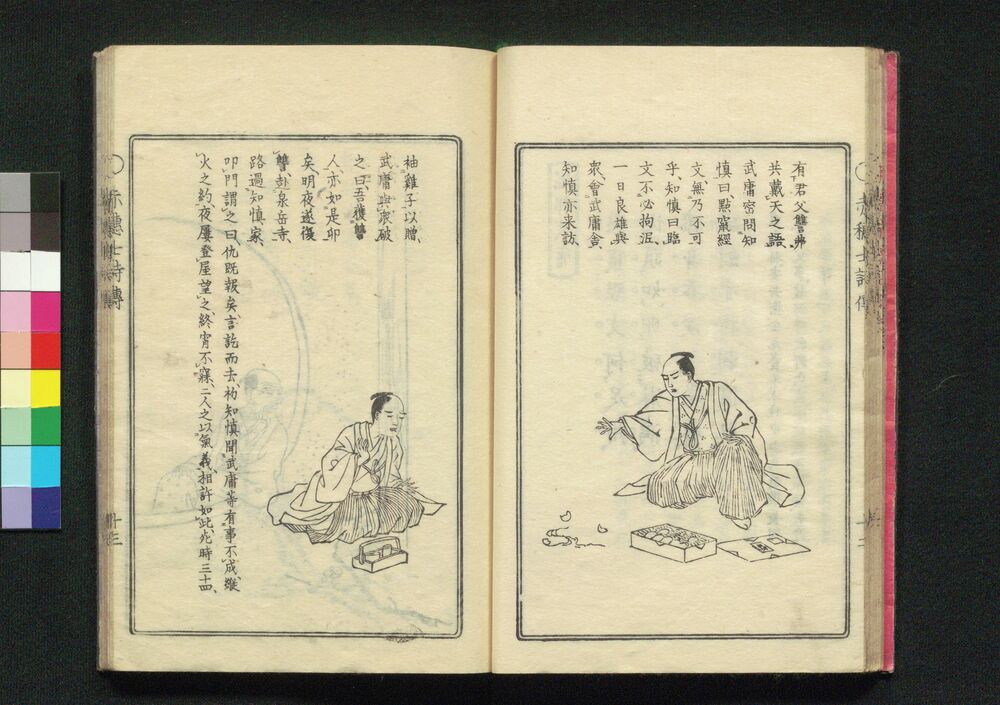 有君父讐弗
共戴天之語、
武庸密問知
慎曰點竄經
文無乃不可
乎、知慎曰臨
文不必拘泥、
一日良雄與
衆會武庸舍、
知慎亦来訪、
袖雞子以贈、
武庸與衆破
之曰、吾獲讐
人、亦如是卵
矣、明夜遂復
讐、赴泉岳寺、
路過知慎家、
叩門謂之曰、仇既報矣、言訖而去、初知慎聞武庸等有事不成、縱
火之約、夜屢登屋望之、終宵不寐、二人之以氣義相許如此、死時三十四、
赤穂士詩傳
十三